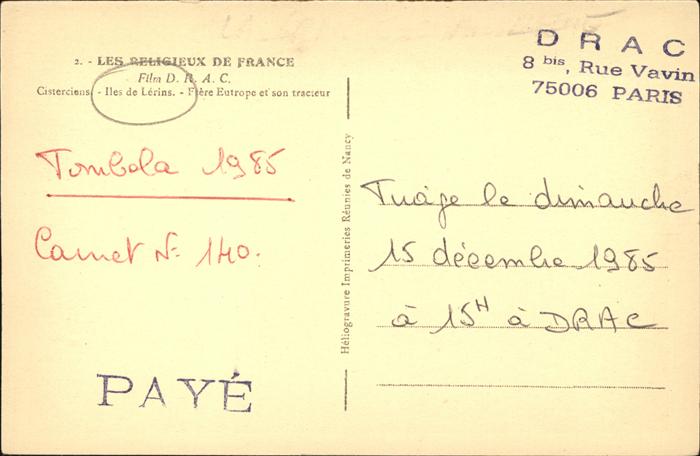 2. - LES RELIGIEUX DE FRANCE
Film D. R. A. C.
Cisterciens. - Iles de Lérins. - Frère Eutrope et son tracteur
Tombola 1985
Carnet N° 140.
PAYÉ
Héliogravure Imprimeries Réunies de Nancy
DRAC
8 bis, Rue Vavin
75006 PARIS
Tirage le dimanche
15 décembre 1985
à 15H à DRAC